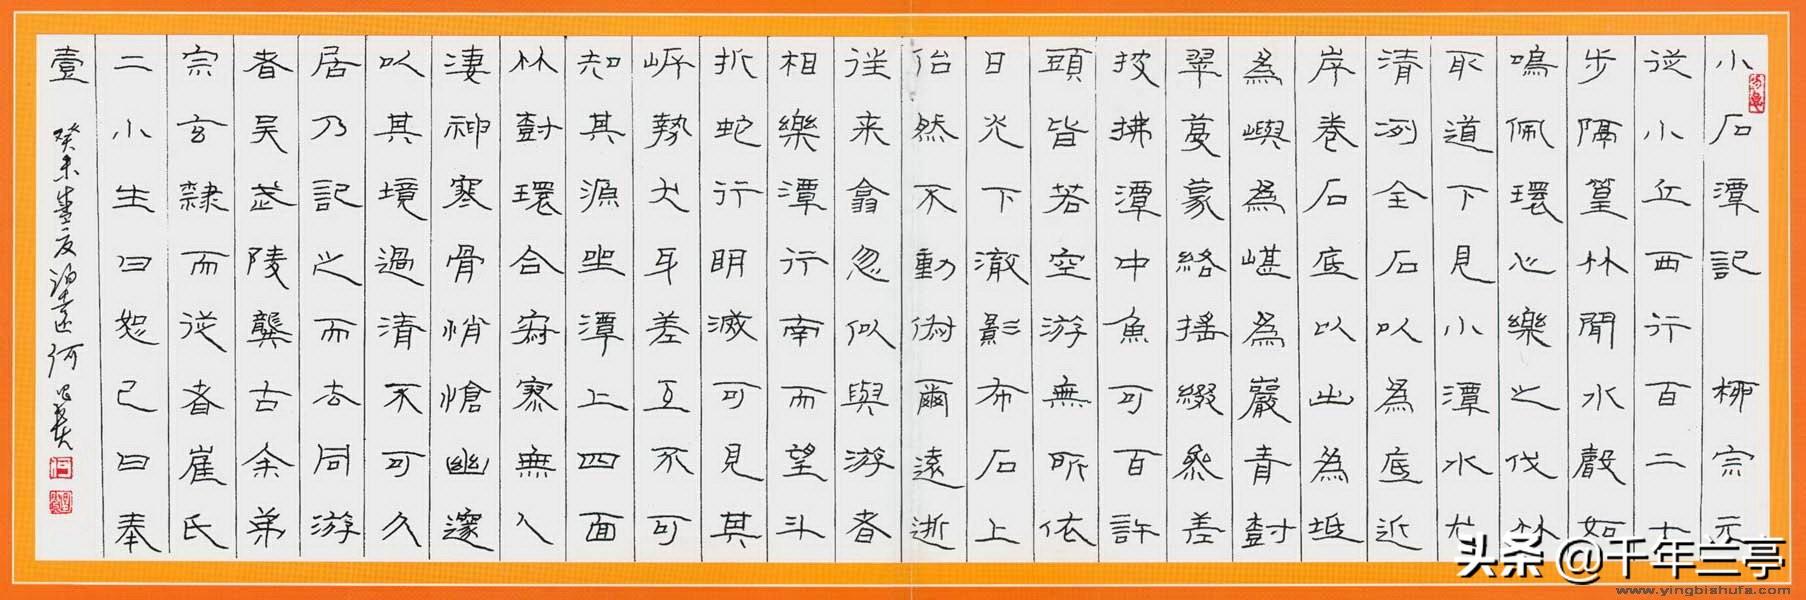 小石潭記 柳宗元
從小丘西行百二十
步隔篁竹聞水聲如
鳴佩環心樂之伐竹
取道下見小潭水尤
清冽全石以為底近
岸卷石底以出為坻
為嶼為嵁為巖青樹
翠蔓蒙絡搖綴參差
披拂潭中魚可百許
頭皆若空游無所依
日光下澈影布石上
佁然不動俶爾遠逝
往来翕忽似與游者
相樂潭行南而望斗
折蛇行明滅可見其
岸勢犬牙差互不可
知其源坐潭上四面
竹樹環合寂寥無人
淒神寒骨悄愴幽邃
以其境過清不可久
居乃記之而去同游
者吴武陵龔古余弟
宗玄隸而從者崔氏
二小生曰恕己曰奉
壹 癸未 何
头条 @千年兰亭
www.yingbishufa.com